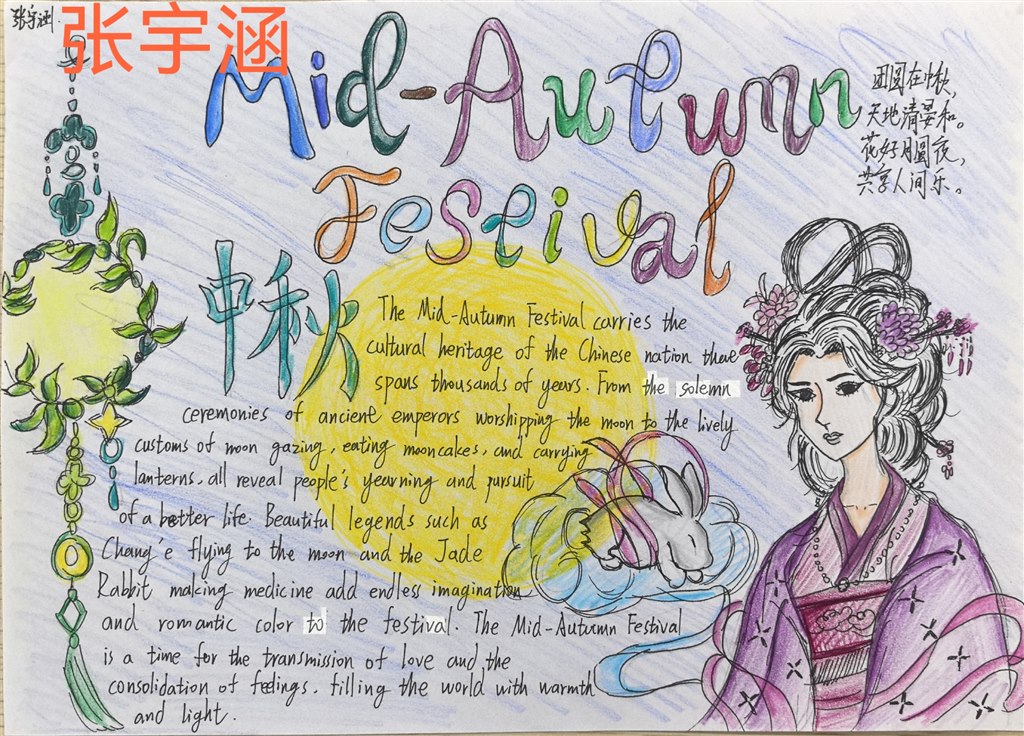 张宇涵
张宇涵
Mid-Autumn
Festival
团圆在中秋,
天地清晏和。
花好月圆夜,
共享人间乐。
中秋
The Mid-Autumn Festival carries the
cultural heritage of the Chinese nation that
spans thousands of years. From the solemn
ceremonies of ancient emperors worshipping the moon to the lively
customs of moon gazing, eating mooncakes, and carrying
lanterns, all reveal people's yearning and pursuit
of a better life. Beautiful legends such as
Chang'e flying to the moon and the Jade
Rabbit making medicine add endless imagination
and romantic color to the festival. The Mid-Autumn Festival
is a time for the transmission of love and the
consolidation of feelings, filling the world with warmth
and light.